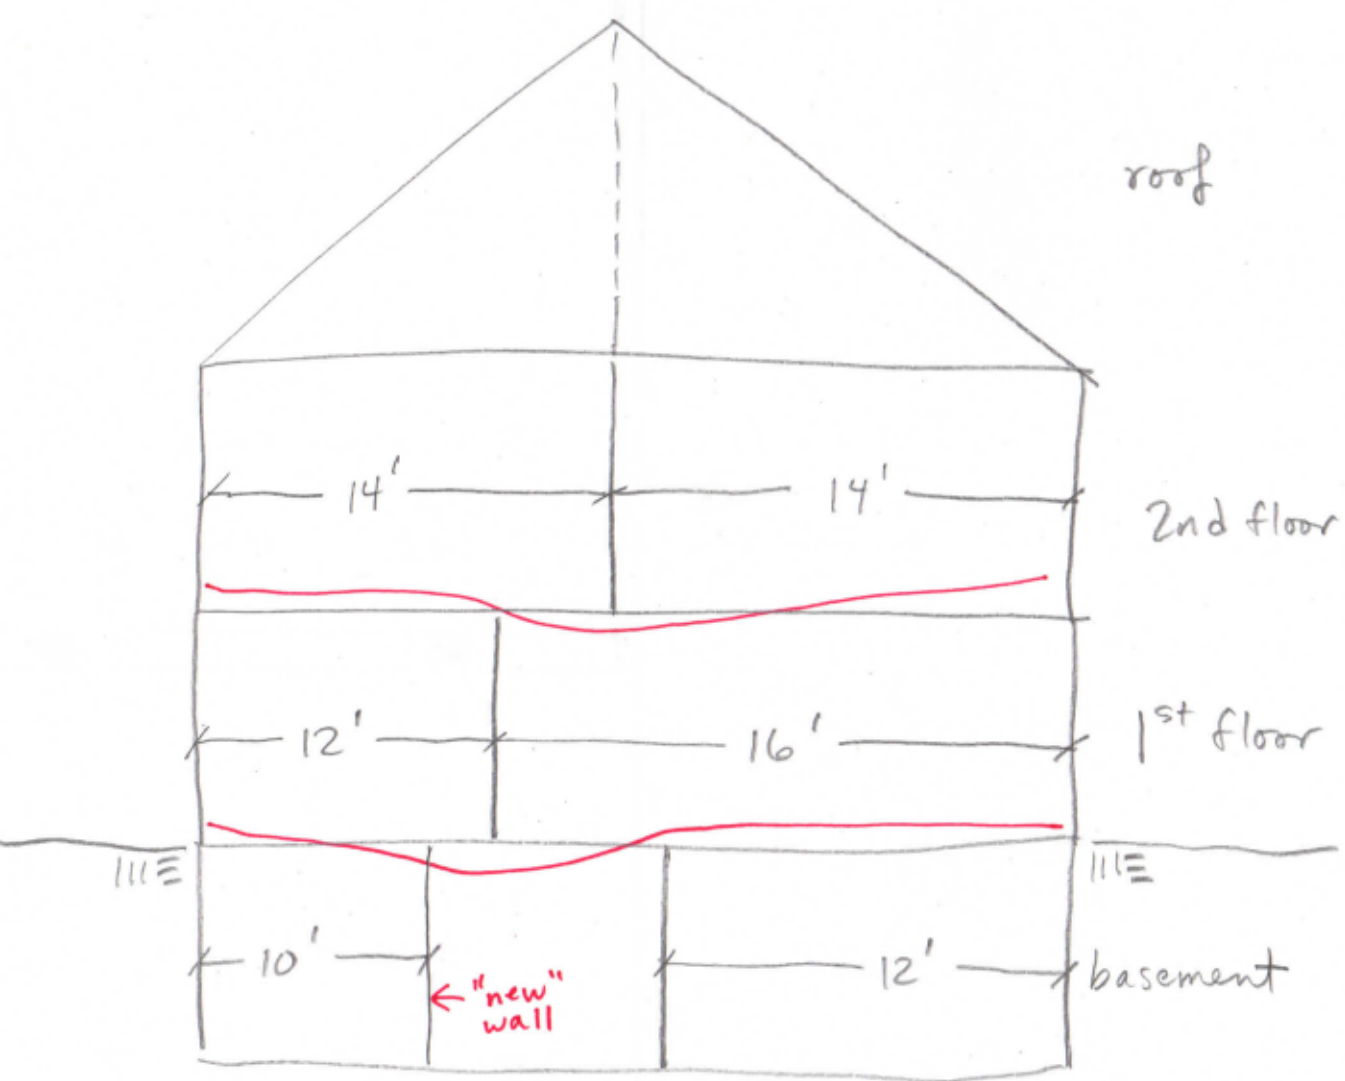 roof
14' 14'
2nd floor
12' 16'
1st floor
10' 12' basement
"new"
wall